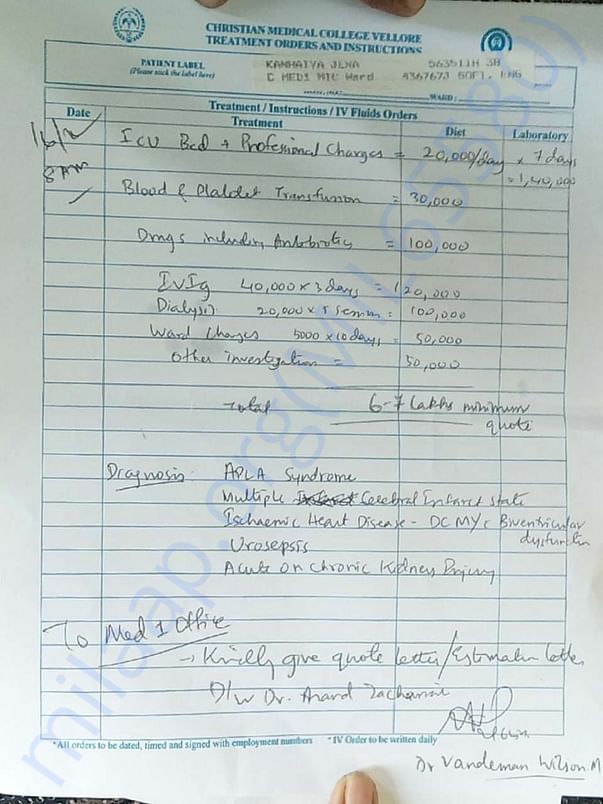 CHRISTIAN MEDICAL COLLEGE VELLORE
TREATMENT ORDERS AND INSTRUCTIONS
PATIENT LABEL
(Please stick the label here)
KANHAIYA JENA 563511H 38
C MED1 MIC Ward 4367673 SOFI, ENG
WARD :
Treatment / Instructions / IV Fluids Orders
Date Treatment Diet Laboratory
16/2
8 AM
ICU Bed + Professional Charges = 20,000/day x 7 days
= 1,40,000
Blood & Platelet Transfusion = 30,000
Drugs including Antobiotics = 100,000
IvIg 40,000 x 3 days = 120,000
Dialysis 20,000 x 5 session = 100,000
Ward Charges 5000 x 10 days = 50,000
Other investigation = 50,000
Total 6-7 Lakhs minimum
quote
Diagnosis: APLA Syndrome
Multiple Cerebral Infarct state
Ischaemic Heart Disease - DCMY c Biventricular
dysfunction
Urosepsis
Acute on Chronic Kidney Injury
To Med 1 Office
→ Kindly give quote letter/Estimation letter
D/W Dr. Anand Zachariah
Dr Vandeman Wilson.M
*All orders to be dated, timed and signed with employment numbers * IV Order to be written daily
milaap.org(MIL65580)